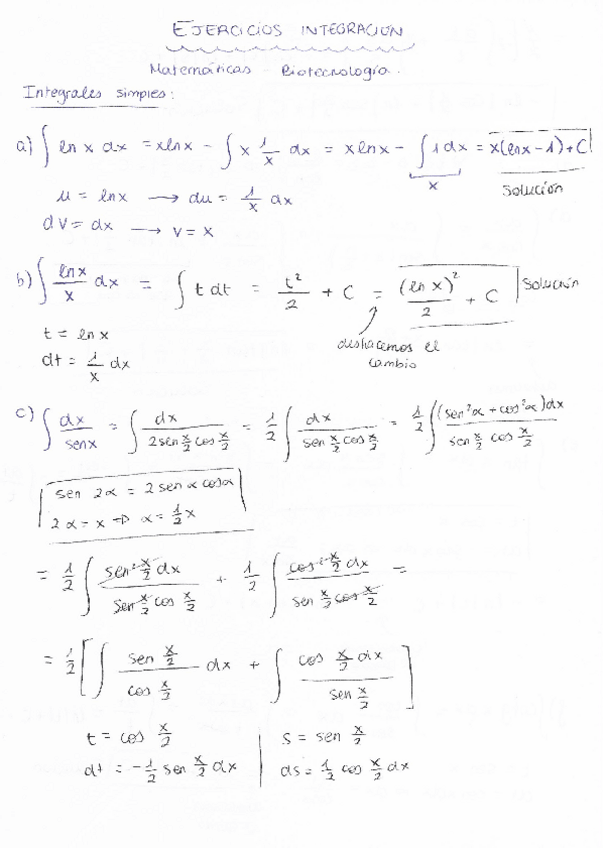 EJERCICIOS INTEGRACION
Matemáticas - Biotecnología.
Integrales simples:
a) ∫ ln x dx = x ln x - ∫ x 1/x dx = x ln x - ∫ 1 dx = x(ln x - 1) + C
x
Solución
u = ln x → du = 1/x dx
dv = dx → v = x
b) ∫ ln x / x dx = ∫ t dt = t²/2 + C = (ln x)²/2 + C Solución
t = ln x
dt = 1/x dx
deshacemos el
cambio
c) ∫ dx / sen x = ∫ dx / 2 sen x/2 cos x/2 = 1/2 ∫ dx / sen x/2 cos x/2 = 1/2 ∫ (sen²α + cos²α) dx / sen x/2 cos x/2
sen 2α = 2 sen α cos α
2α = x ⇒ α = 1/2 x
= 1/2 ∫ sen² x/2 dx / sen x/2 cos x/2 + 1/2 ∫ cos² x/2 dx / sen x/2 cos x/2 =
= 1/2 [ ∫ sen x/2 / cos x/2 dx + ∫ cos x/2 dx / sen x/2 ]
t = cos x/2 | s = sen x/2
dt = -1/2 sen x/2 dx | ds = 1/2 cos x/2 dx